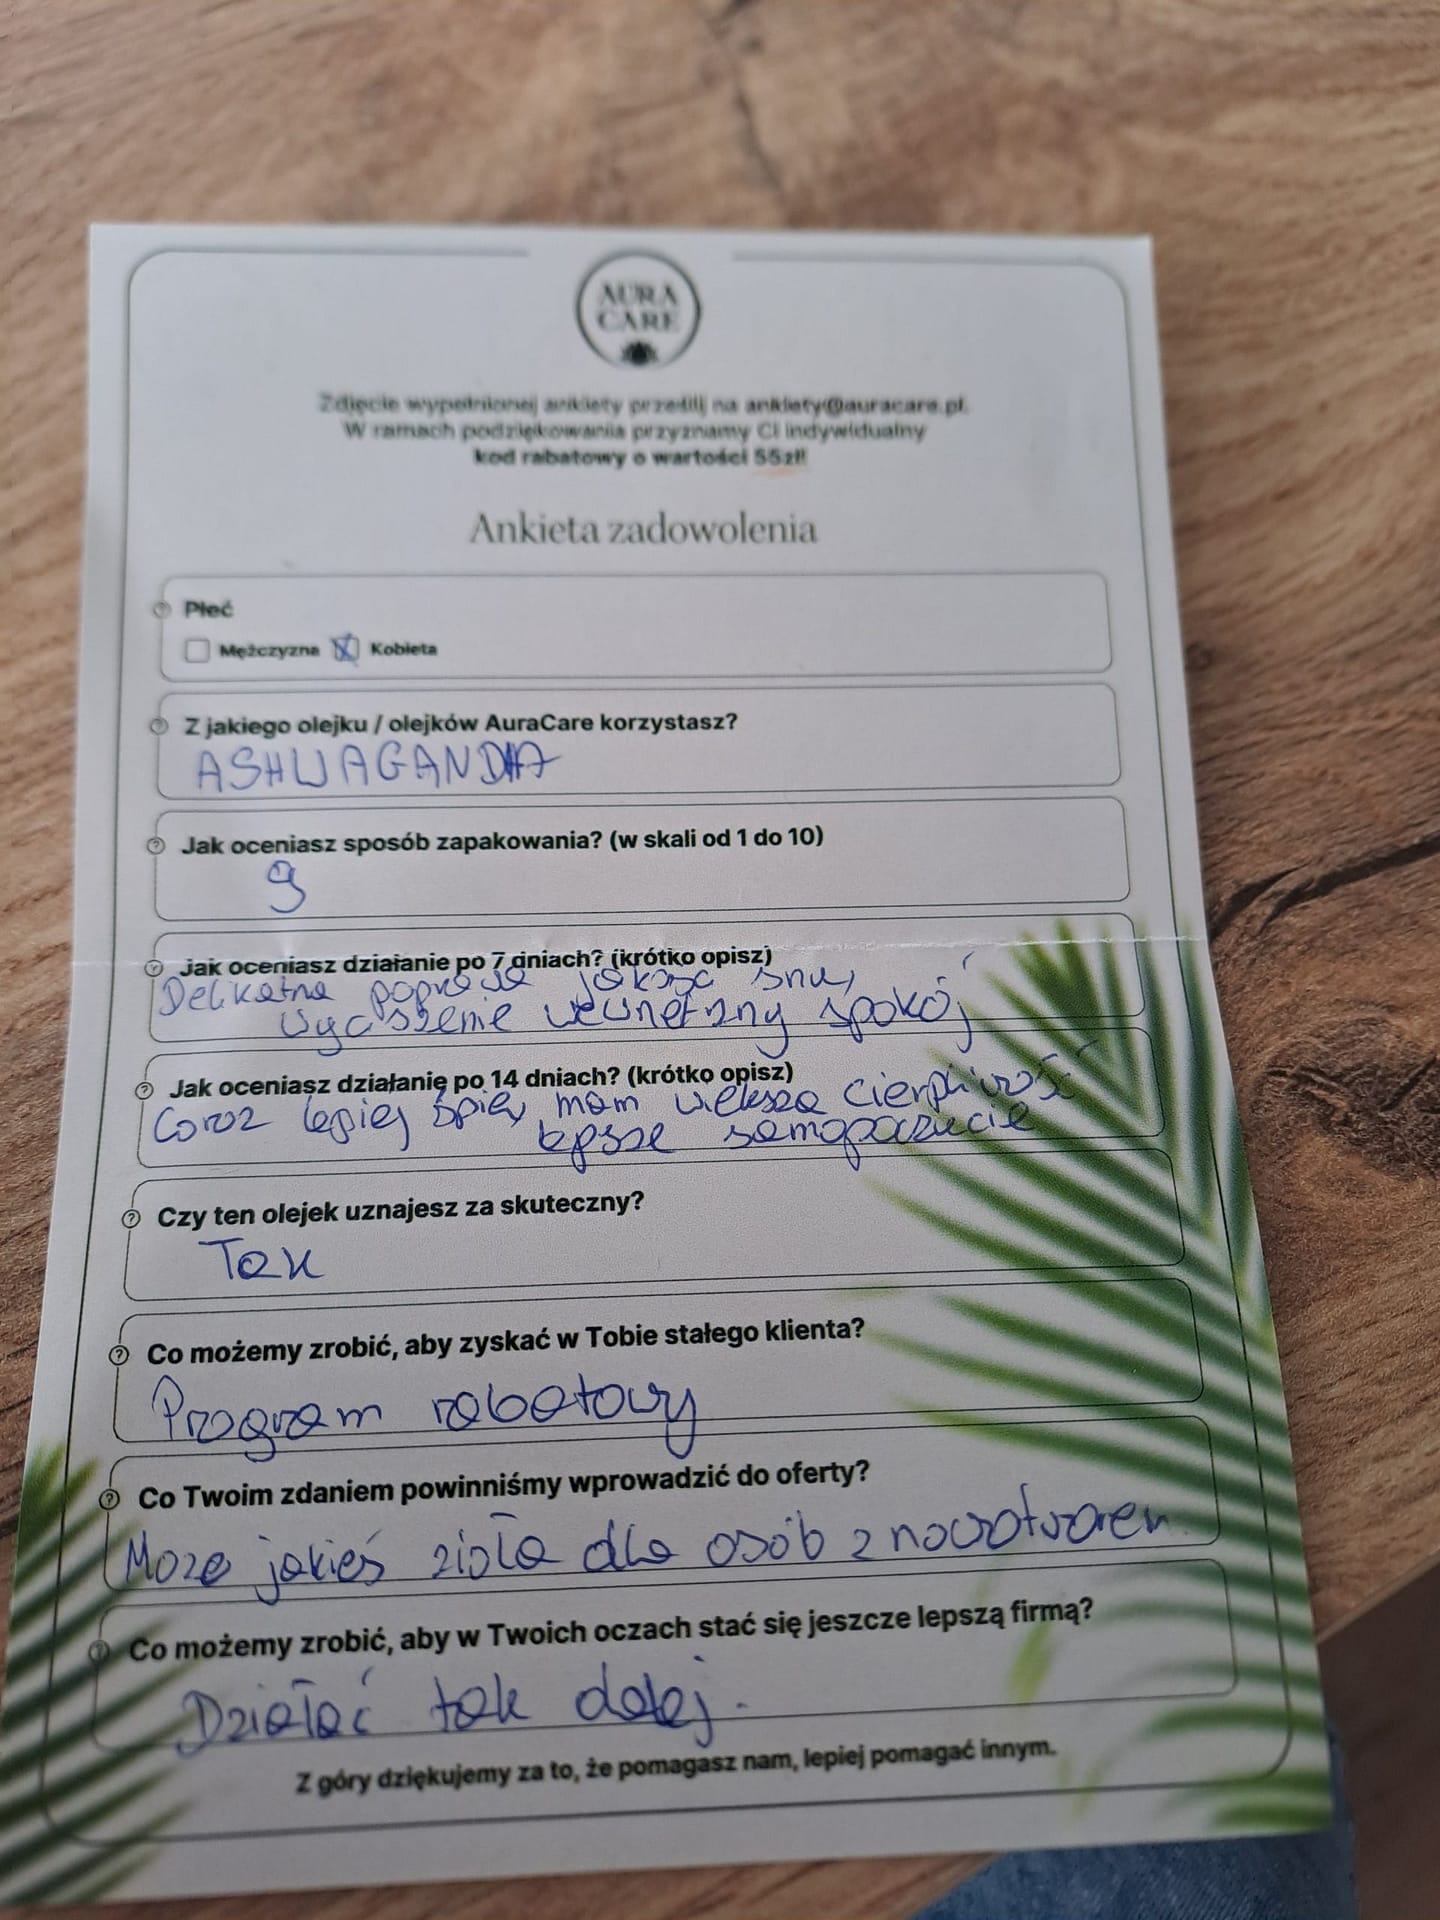 AURA
CARE
Zdjęcie wypełnionej ankiety prześlij na ankiety@auracare.pl.
W ramach podziękowania przyznamy Ci indywidualny
kod rabatowy o wartości 55zł!
Ankieta zadowolenia
Płeć
Mężczyzna Kobieta
Z jakiego olejku / olejków AuraCare korzystasz?
ASHWAGANDHA
Jak oceniasz sposób zapakowania? (w skali od 1 do 10)
9
Jak oceniasz działanie po 7 dniach? (krótko opisz)
Delikatna poprawa jakość snu,
wyciszenie wewnętrzny spokój
Jak oceniasz działanie po 14 dniach? (krótko opisz)
Coraz lepiej śpię, mam większą cierpliwość
lepsze samopoczucie
Czy ten olejek uznajesz za skuteczny?
Tak
Co możemy zrobić, aby zyskać w Tobie stałego klienta?
Program rabatowy
Co Twoim zdaniem powinniśmy wprowadzić do oferty?
Moze jakieś zioła dla osób z nowotworem
Co możemy zrobić, aby w Twoich oczach stać się jeszcze lepszą firmą?
Działać tak dalej.
Z góry dziękujemy za to, że pomagasz nam, lepiej pomagać innym.